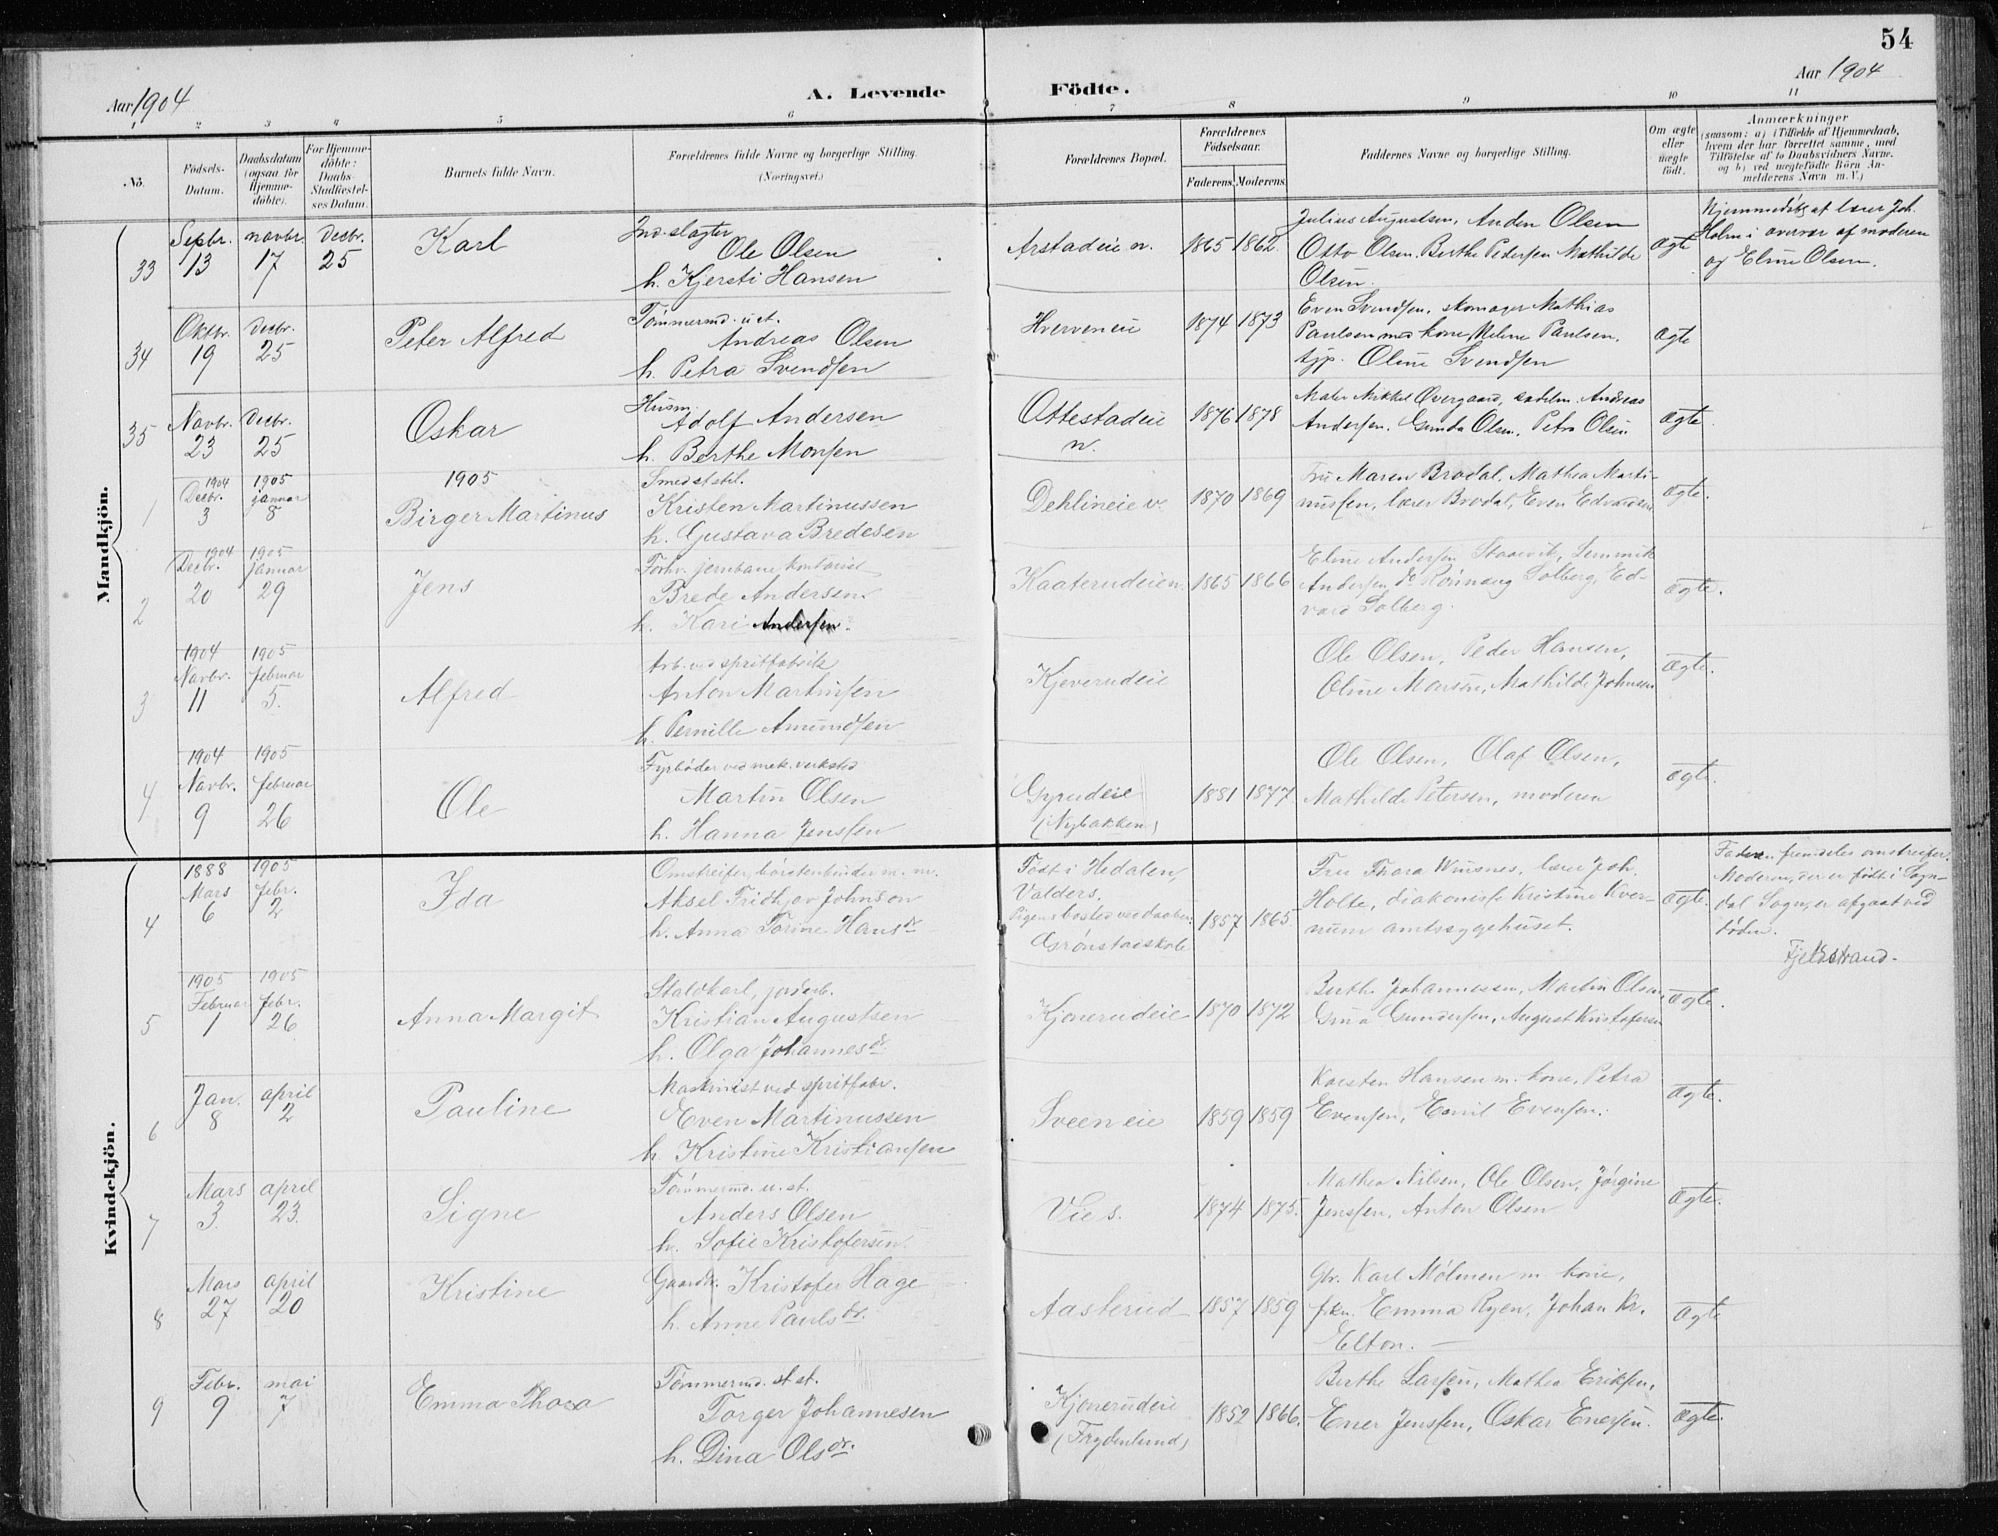 54
Aar 1904
A. Levende Födte.
Aar 1904
1 2 3 4 5 6 7 8 9 10 11
No.
Födsels-Datum.
Daabsdatum (ogsaa for Hjemme-döbte).
For Hjemme-döbte: Daabs-Stadfæstel-ses Datum.
Barnets fulde Navn.
Forældrenes fulde Navne og borgerlige Stilling.
(Næringsvei.)
Forældrenes Bopæl.
Forældrenes Födselsaar.
Faderens. Moderens.
Faddernes Navne og borgerlige Stilling.
Om ægte eller uægte födt.
Anmærkninger
(saasom: a) i Tilfælde af Hjemmedaab,
hvem der har forrettet samme, med
Tilföielse af to Daabsvidners Navne,
og b) ved uægtefödte Börn An-
melderens Navn m. V.)
Mandkjön.
33 Septbr. 13 novbr. 17 Decbr. 25 Karl
Ind. slagter
Ole Olsen
h. Kjersti Hansen
Arstadeie n. 1865 1862
Julius Augustsen, Anders Olsen
Otto Olsen, Berthe Pedersen Mathilde
Olsen.
Ægte
Hjemmedøbt af lærer Joh.
Holm i overvær af moderen
og Eline Olsen.
34 Oktbr. 19 Decbr. 25 Peter Alfred
Tømmermd. u. st.
Andreas Olsen
h. Petra Svendsen
Hverveneie 1874 1873
Even Svendsen, skomager Mathias
Paulsen med kone, Helene Paulsen,
tjp. Oline Svendsen
Ægte
35 Novbr. 23 Decbr. 25 Oskar
Husm.
Adolf Andersen
h. Berthe Monsen
Ottestadeie n. 1876 1878
Maler Mikkel Øvergaard, sadelm. Andreas
Andersen, Gunda Olsen, Petra Olsen
Ægte
1905
1 1904 Decbr. 3 1905 januar 8 Birger Martinus
Smed st. stil.
Kristen Martinussen
h. Gustava Bredesen
Dehlineie v. 1870 1869
Fru Maren Brodal, Mathea Marti-
nussen, lærer Brodal, Even Edvardsen
Ægte.
2 1904 Decbr. 20 1905 januar 29 Jens
Forhv. jernbane kontorist
Brede Andersen.
h. Kari Andersen.
Kaaterudeie n. 1865 1866
Eline Andersen Staavik,
Andersen do Rønnaug Solberg, Ed-
vard Solberg.
Ægte.
3 1904 Novbr. 11 1905 februar 5. Alfred
Arb. ved spritfabrik
Anton Martinsen
h. Pernille Amundsen
Kjeverudeie
Ole Olsen, Peder Hansen,
Oline Monsen, Mathilde Johnsen
Ægte.
4 1904 Novbr. 9 1905 februar 26 Ole
Fyrbøder ved mek. verksted
Martin Olsen
h. Hanna Jenssen
Gyrudeie
(Nybakken) 1881 1877
Ole Olsen, Olaf Olsen,
Mathilde Petersen, moderen
Ægte.
Kvindekjön.
4 1888 Mars 6 1905 febr. 2 Ida
Omstreifer, børstenbinder m. m.
Aksel Fridtjov Johnson
h. Anna Torine Hansdr
Født i Hedalen,
Valders.
Pigens bosted ved daaben:
Grønstadskole
1857 1865
Fru Thora Wiisnes, lærer Joh.
Holte, diakonisse Kristine Kver-
num amtssygehuset.
Ægte.
Faderen fremdeles omstreifer.
Moderen, der er født i Sogn-
dal Sogn, er afgaat ved
døden.
Fjeldstrand.
5 1905 Februar 1 1905 febr. 26 Anna Margit
Staldkarl, jordarb.
Kristian Augustsen
h. Olga Johannesdr.
Kjonerudeie 1870 1872
Berthe Johannessen, Martin Olsen,
Gina Gundersen, August Kristofersen
Ægte.
6 Jan. 8 april 2 Pauline
Maskinist ved spritfabr.
Even Martinussen
h. Kristine Kristiansen
Sveeneie 1859 1859
Karsten Hansen m. kone, Petra
Evensen, Emil Evensen.
Ægte.
7 Mars 3. april 23. Signe
Tømmermd. u. st.
Anders Olsen
h. Sofie Kristofersen.
Vie s. 1874 1875.
Mathea Nilsen, Ole Olsen, Jørgine
Jenssen, Anton Olsen
Ægte.
8 Mars 27 april 20 Kristine
Gaardbr. Kristofer Hage
h. Anne Paulsdr.
Aasterud 1857 1859
Gbr. Karl Mølmen m. kone,
frkn. Emma Ryen, Johan Kr.
Elton. —
Ægte
9 Febr. 9 mai 7 Emma Thora
Tømmermd. st. st.
Torger Johannesen
h. Dina Olsdr.
Kjonerudeie
(Frydenlund) 1852 1866.
Berthe Larsen, Mathea Eriksen,
Ener Jenssen, Oskar Enersen.
Ægte.